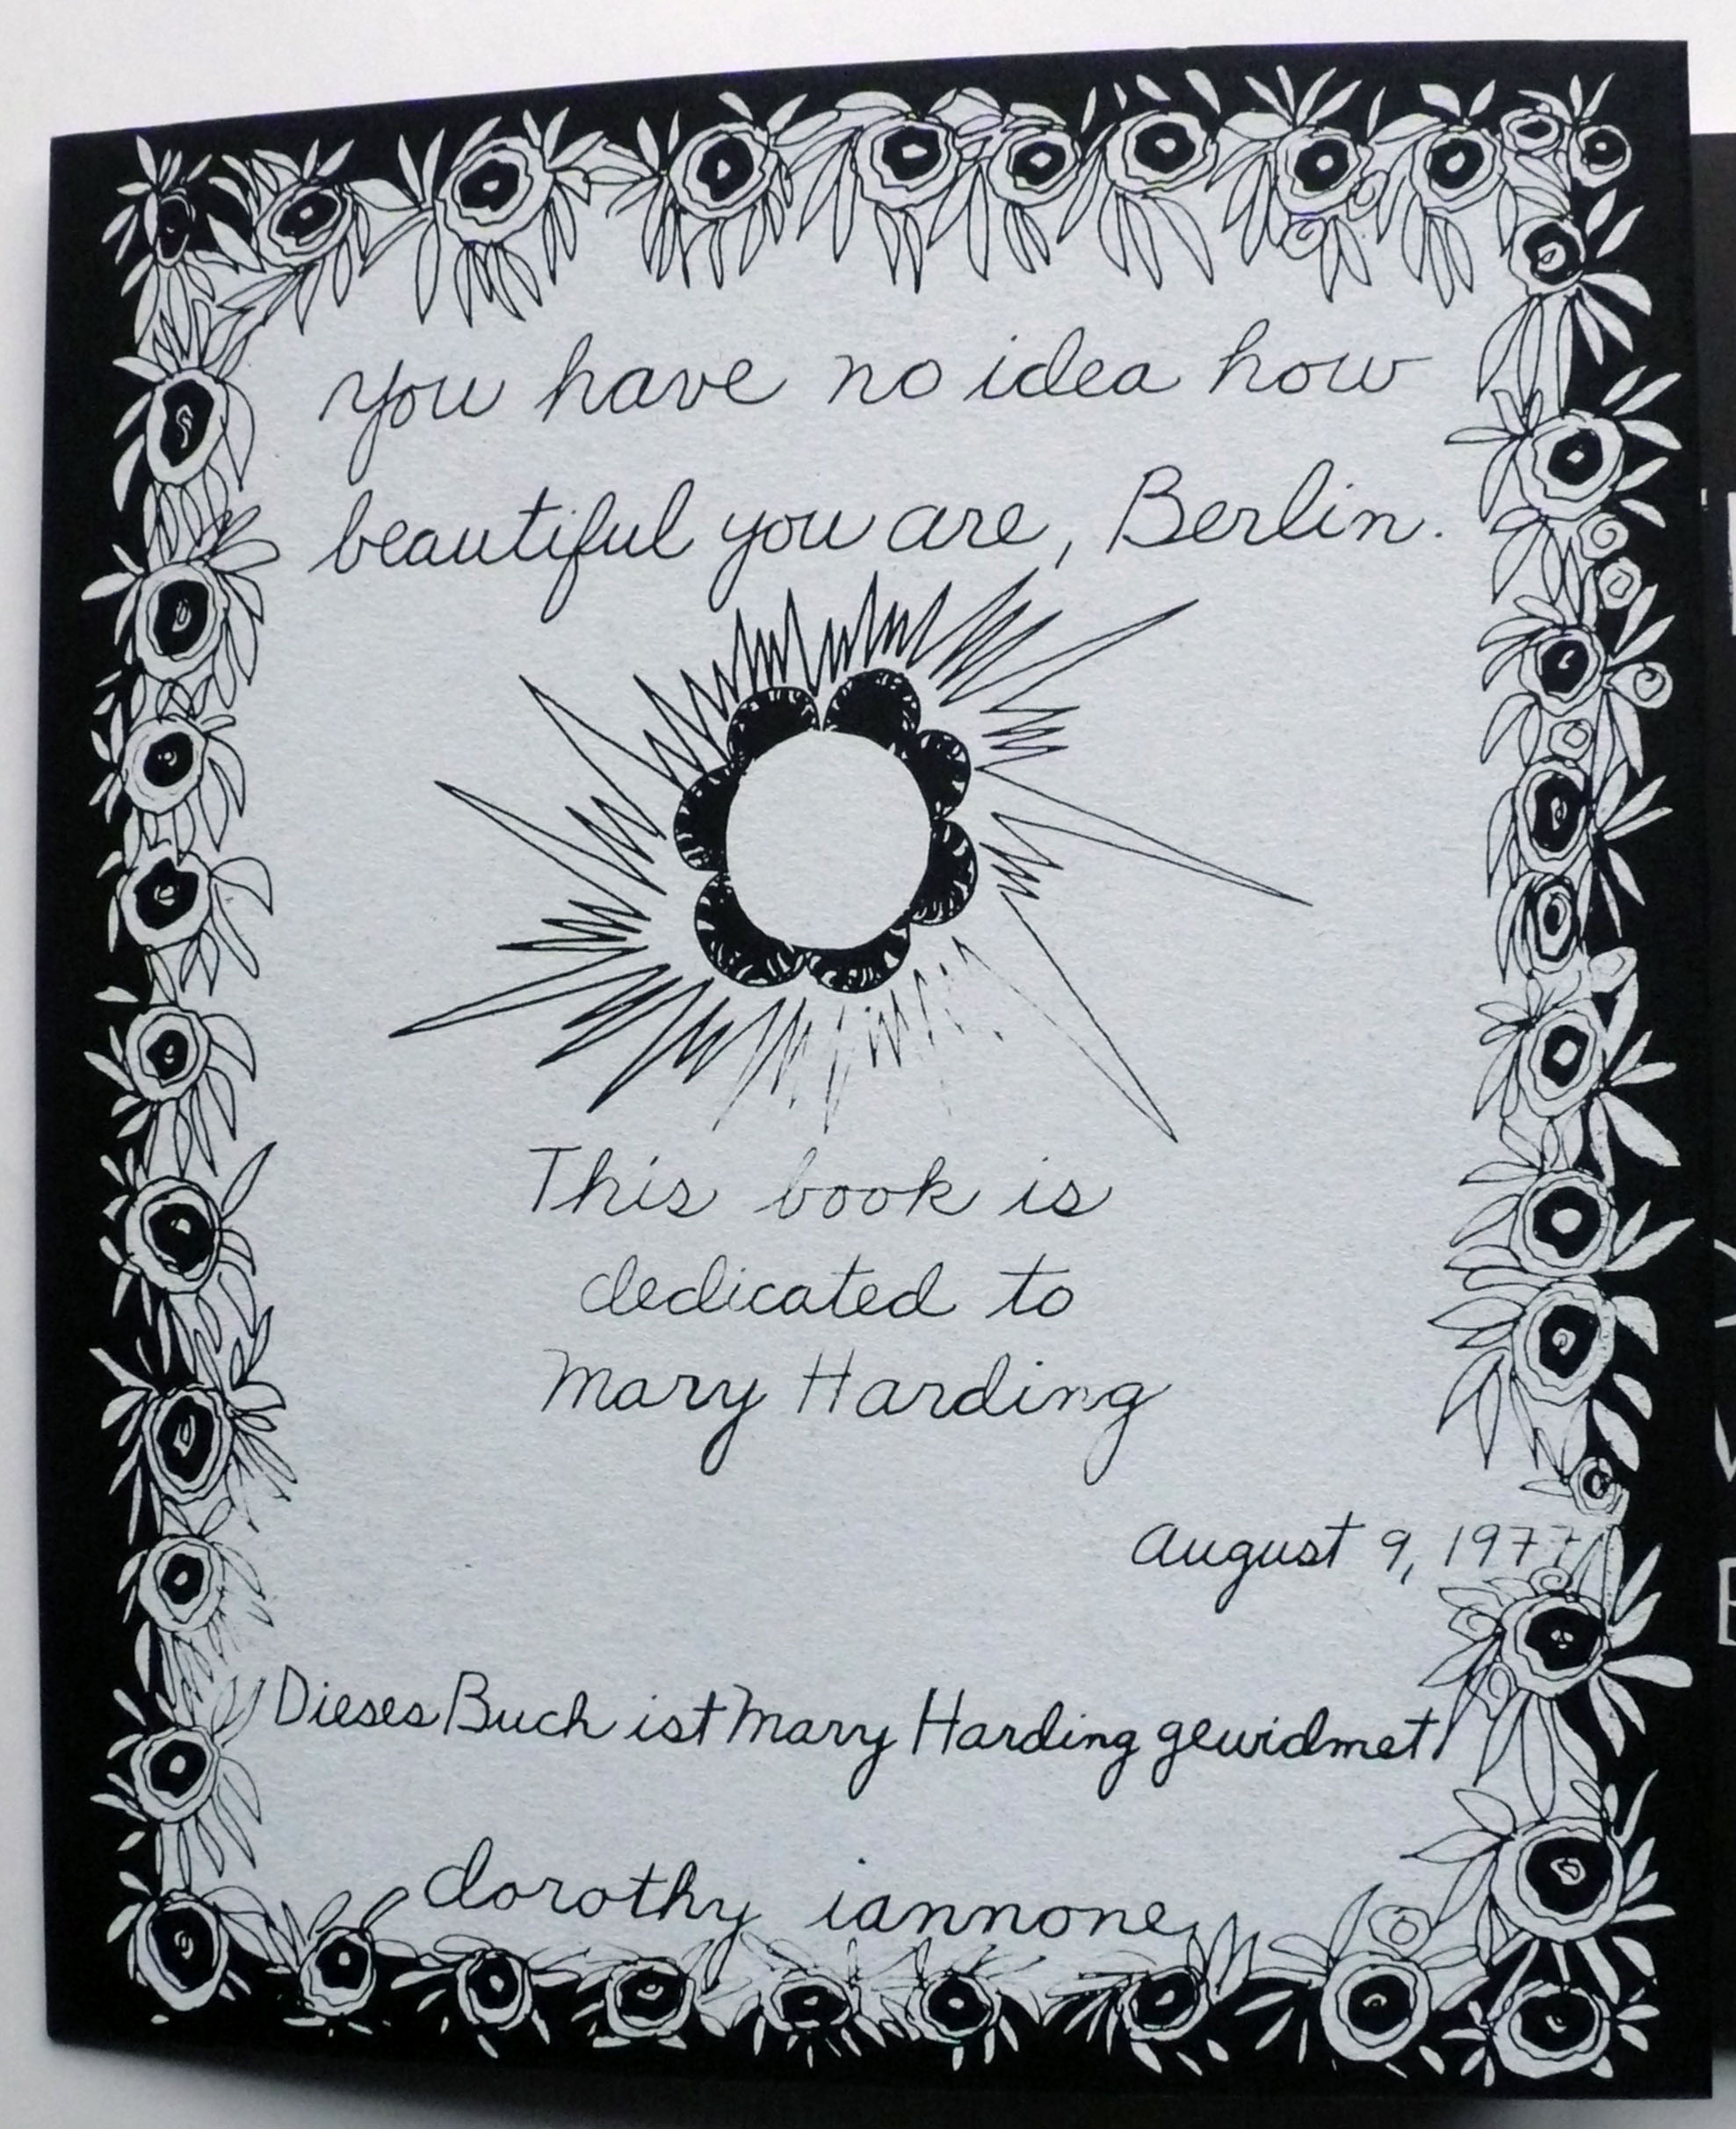 you have no idea how
beautiful you are, Berlin.
This book is
dedicated to
Mary Harding
august 9, 1977
Dieses Buch ist Mary Harding gewidmet
dorothy iannone